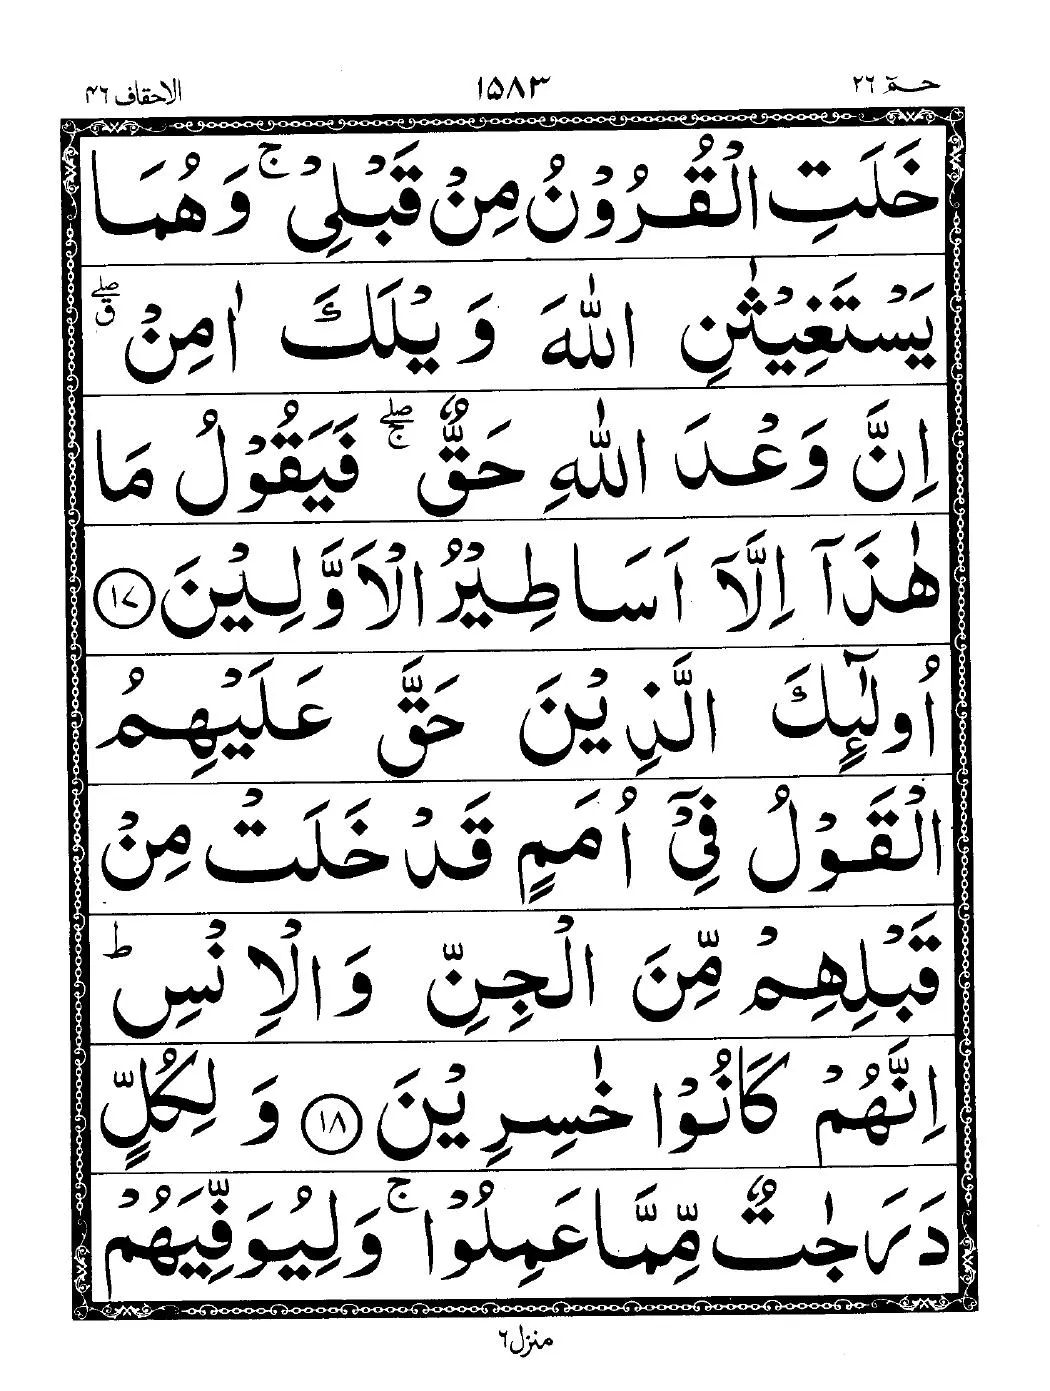 حٰمٓ ٢٦
١٥٨٣
الاحقاف ٤٦
خَلَتِ الْقُرُوْنُ مِنْ قَبْلِیْ ۚ وَهُمَا
یَسْتَغِیْثٰنِ اللّٰهَ وَیْلَكَ اٰمِنْ ۖۗ
اِنَّ وَعْدَ اللّٰهِ حَقٌّ ۖۚ فَیَقُوْلُ مَا
هٰذَاۤ اِلَّاۤ اَسَاطِیْرُ الْاَوَّلِیْنَ ١٧
اُولٰٓىِٕكَ الَّذِیْنَ حَقَّ عَلَیْهِمُ
الْقَوْلُ فِیْۤ اُمَمٍ قَدْ خَلَتْ مِنْ
قَبْلِهِمْ مِّنَ الْجِنِّ وَالْاِنْسِ ؕ
اِنَّهُمْ كَانُوْا خٰسِرِیْنَ ١٨ وَ لِكُلٍّ
دَرَجٰتٌ مِّمَّا عَمِلُوْا ۚ وَلِیُوَفِّیَهُمْ
منزل ٦